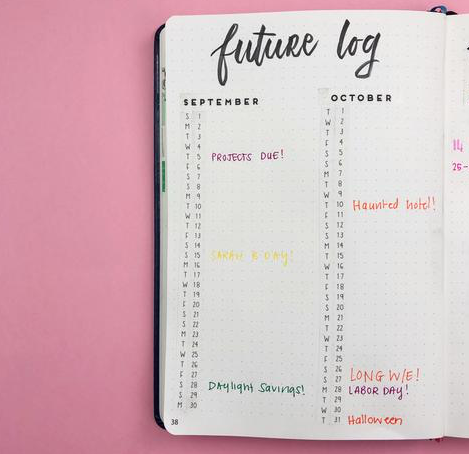 future log
SEPTEMBER
S 1
M 2
T 3
W 4
T 5 PROJECTS DUE!
F 6
S 7
S 8
M 9
T 10
W 11
T 12
F 13
S 14
S 15 SARAH B DAY!
M 16
T 17
W 18
T 19
F 20
S 21
S 22
M 23
T 24
W 25
T 26
F 27
S 28 DAylight Savings!
S 29
M 30
38
OCTOBER
T 1
W 2
T 3
F 4
S 5
S 6
M 7
T 8
W 9
T 10 Haunted hotel!
F 11
S 12
S 13
M 14
T 15
W 16
T 17
F 18
S 19
S 20
M 21
T 22
W 23
T 24
F 25
S 26 LONG W/E!
S 27
M 28 LABOR DAY!
T 29
W 30
T 31 Halloween
14
26-